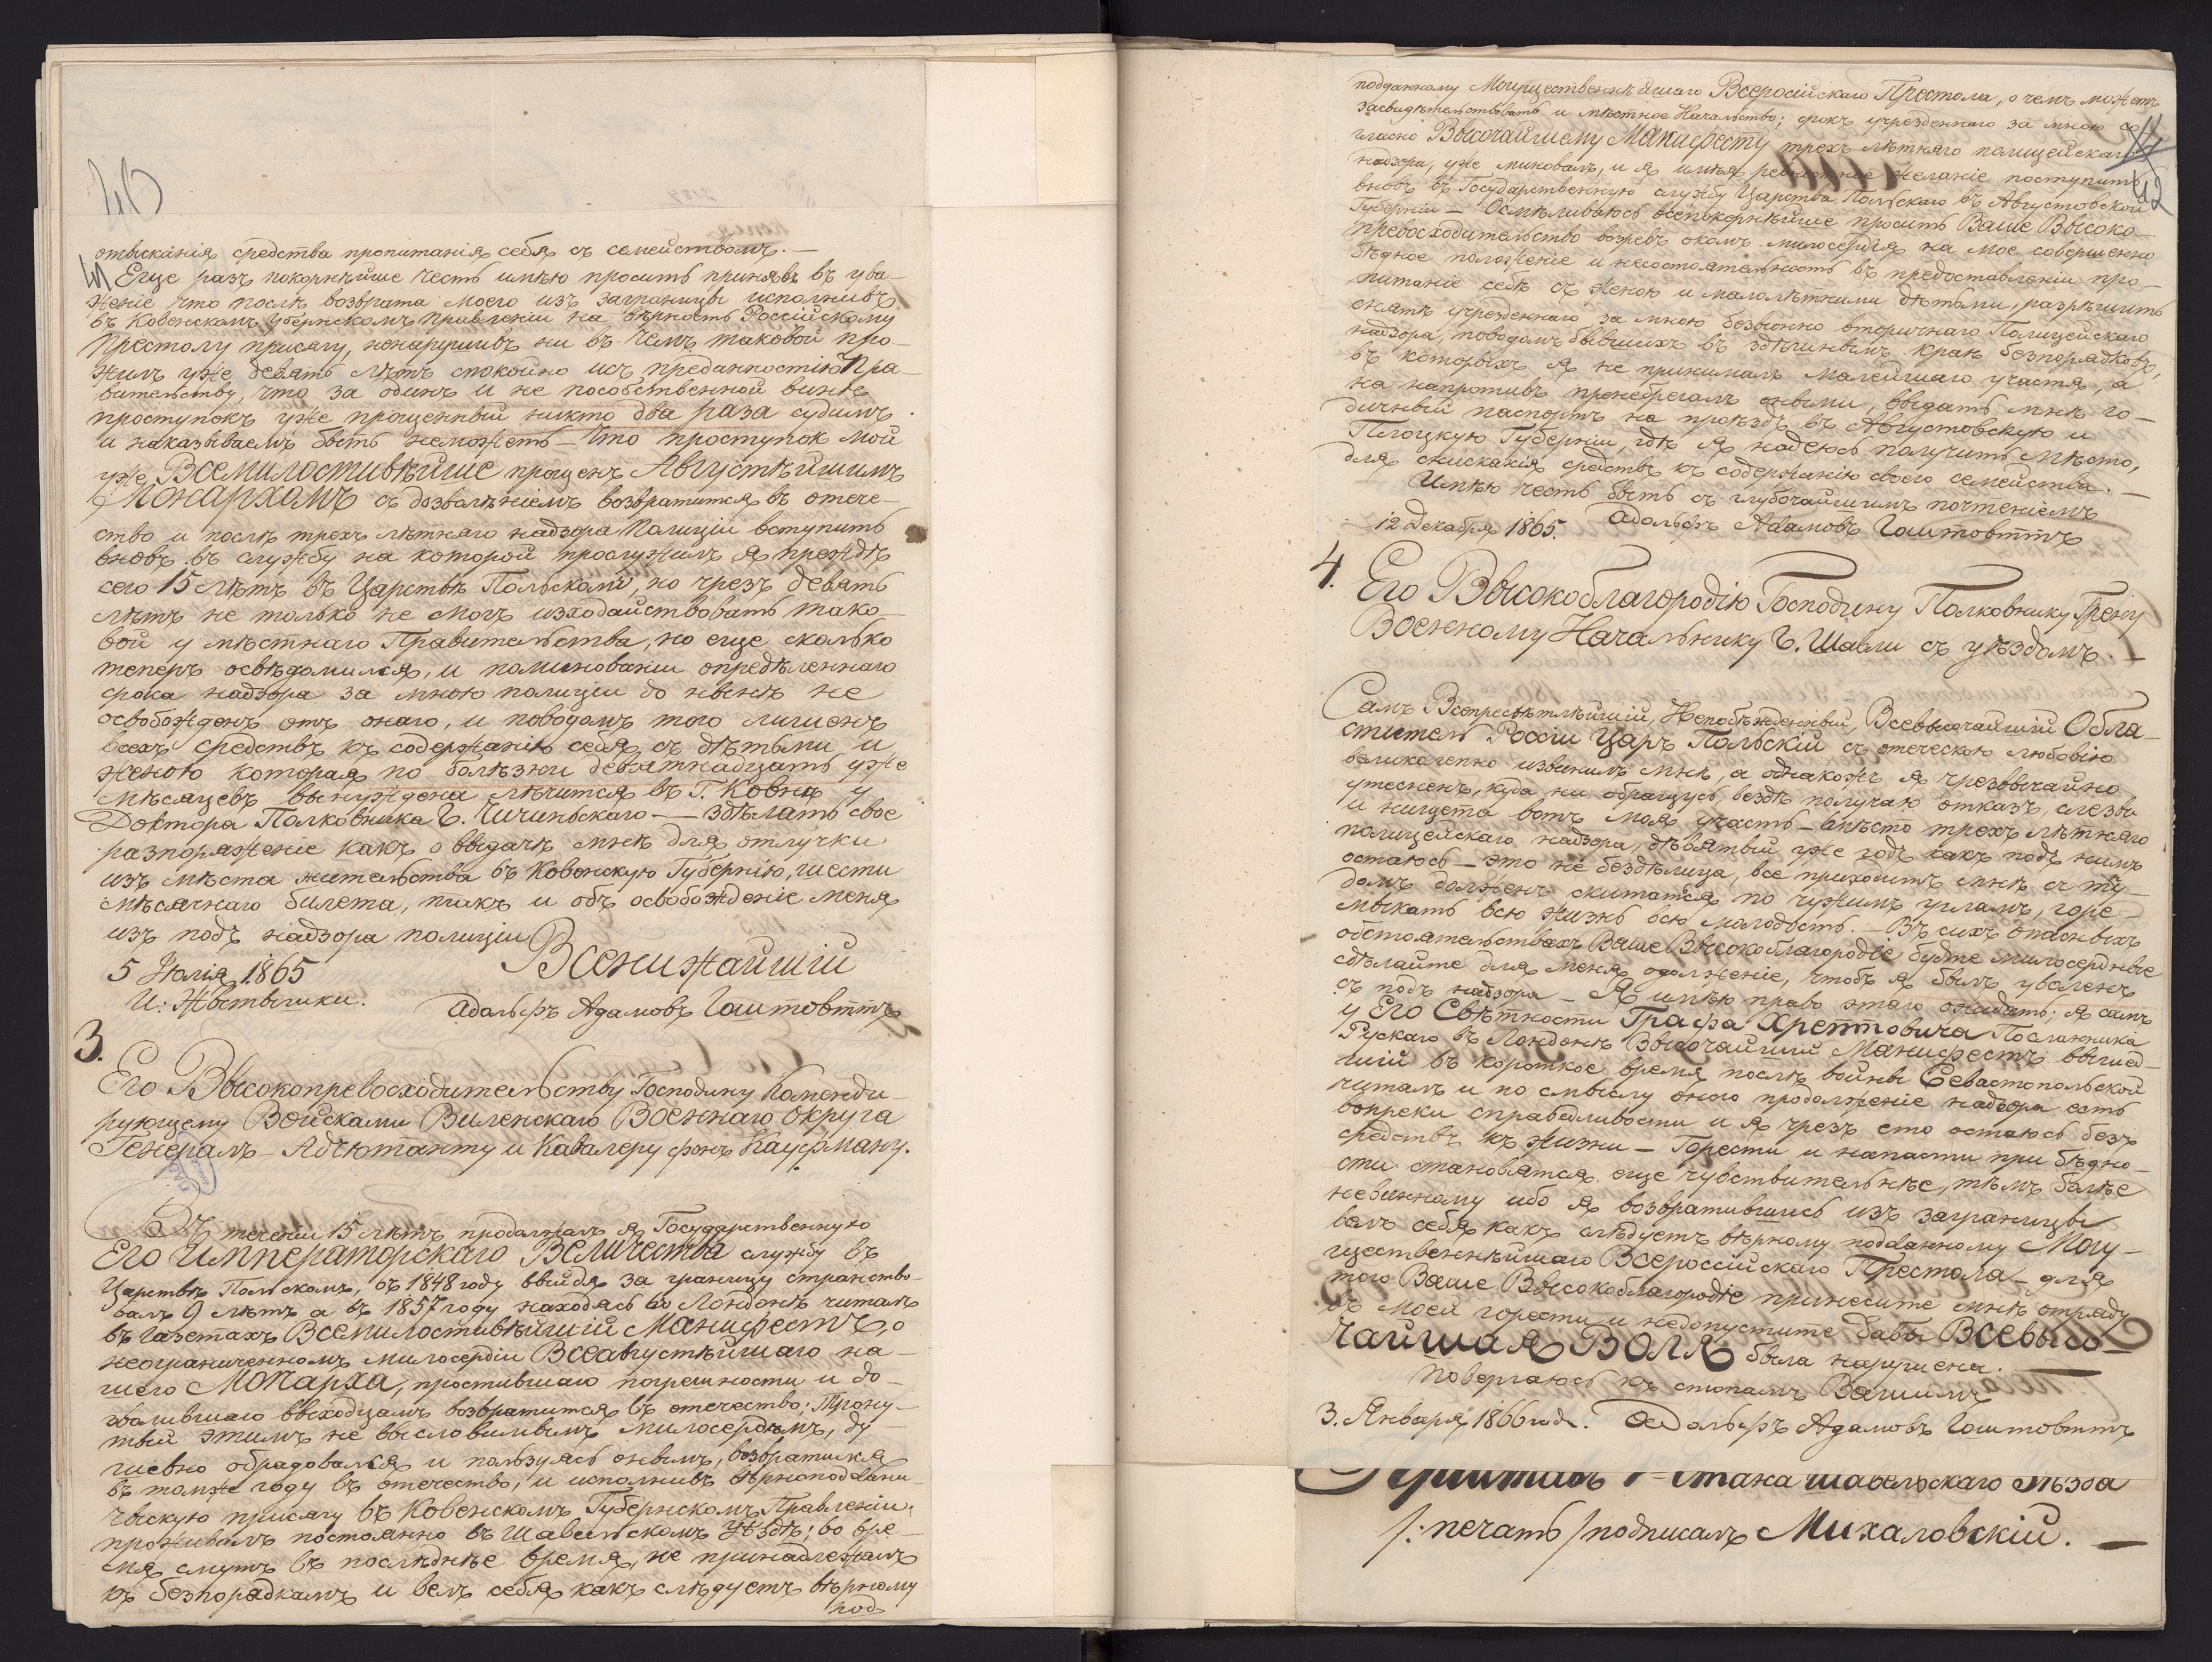 40
отысканія средства пропитанія себя съ семействомъ. —
41
Еще разъ покорнѣйше честь имѣю просить принявъ въ ува-
женіе что послѣ возврата моего изъ заграницы исполнивъ
въ Ковенскомъ Губернскомъ Правленіи на вѣрность Россійскому
Престолу присягу, ненарушивъ ни въ чемъ таковой про-
жилъ уже девять лѣтъ спокойно исъ преданностію Пра-
вительству, что за одинъ и не пособственной винѣ
проступокъ уже прощенный никто два раза судимъ
и наказываемъ быть неможетъ — Что проступок мой
уже Всемилостивѣйше прощенъ Августѣйшимъ
Монархомъ съ дозвалѣніемъ возвратится въ отече-
ство и послѣ трехъ лѣтняго надзора Полиціи вступить
вновь въ службу на которой прослужилъ я прождѣ
сего 15 лѣтъ въ Царствѣ Польскомъ, но чрезъ девять
лѣтъ не только не могъ изходайствовать тако-
вой у мѣстнаго Правительства, но еще сколько
теперь освѣдомился, и поминованіи опредѣленнаго
срока надзора за мною полиціи до нынѣ не
освобожденъ отъ онаго, и поводомъ того лишенъ
всехъ средствъ къ содержанію себя съ дѣтьми и
женою которая по болѣзни девятнадцать уже
мѣсяцевъ вынуждена лѣчится въ Г. Ковнѣ у
Доктора Полковника Г. Чичиньскаго — здѣлать свое
разпоряженіе какъ о выдачѣ мнѣ для отлучки
изъ мѣста жительства въ Ковенскую Губернію, шести
мѣсячнаго билета, такъ и объ освобожденіе меня
изъ подъ надзора полиціи
Всенижайшій
5 Іюлія 1865
И: Жвтвышки.
Адольфъ Адамовъ Гаштовттъ
3.
Его Высокопревосходительству Господину Коменди-
рующему Войсками Виленскаго Военнаго Округа
Генералъ-Адъютанту и Кавалеру фонъ Кауфману.
Въ теченіи 15 лѣтъ продалжалъ я Государственную
Его Императорскаго Величества службу въ
Царствѣ Польскомъ, въ 1848 году выйдя за границу странство-
валъ 9 лѣтъ а въ 1857 году находясь во Лондонѣ читалъ
въ газетахъ Всемилостивѣйшій Манифестъ, о
неограниченномъ милосердіи Всеавгустѣйшаго на-
шего Монарха, простившаго погрешности и до-
зволившаго выходцамъ возвратится въ отечество; Трону-
тый этимъ не высловимымъ милосердѣмъ, ду-
шевно обрадовался и пользуясь онымъ, возвратился
въ томже году въ отечество, и исполнивъ вѣрноподдани-
чвскую присягу въ Ковенскомъ Губернскомъ Правленіи,
проживалъ постоянно въ Шавельскомъ Уѣздѣ; во вре-
мя смутъ въ послѣднѣе время, не принадлежалъ
къ безпорядкамъ и велъ себя какъ слѣдуетъ вѣрному
под
подданному Могущественнѣйшаго Всеросiйскаго Престола, о чемъ можетъ
засвидѣтельствовать и мѣстное Начальство; срокъ учрезденнаго за мною со-
гласно Высочайшему Манифесту трехъ лѣтняго полицейскаго
42
надзора, уже миновалъ, и я имѣя желаніе поступить
вновь въ Государственную службу Царства Польскаго въ Августовской
Губерніи — Осмѣливаюсь всепокорнѣйше просить Ваше Высоко-
превосходительство возревъ окомъ милосердія на мое совершенно
бѣдное положеніе и несостоятельность въ предоставленіи про-
питаніе себѣ съ женою и малолѣтними дѣтьми, разрѣшить
снять учрезденнаго за мною безвинно вторичнаго Полицейскаго
надзора, поводомъ бывшихъ въ здѣшнымъ краѣ безпорядковъ,
въ которыхъ я не принималъ малейшаго участя, а
на напротивъ пренебрегалъ оными, выдать мнѣ го-
дичный паспортъ на проѣздъ въ Августовскую и
Плоцкую Губерніи, гдѣ я надеюсь получить мѣсто,
для снисканія средствъ къ содержанію своего семейства. —
Имѣю честь быть съ глубочайшимъ почтеніемъ
12 Декабря 1865. Адольфъ Адамовъ Гаштовттъ
4.
Его Высокоблагородію Господину Полковнику Грену
Военному Начальнику Г. Шавли съ уѣздомъ. —
Самъ Всепресвѣтлѣйшій, Непобѣжденный, Всевысочайшій Обла-
ститель Россіи Царь Польскій съ отеческою любовію
великолепно извинилъ мнѣ, а однакожъ я чрезвычайно
утесненъ, куда ни обращусь, вездѣ получаю отказъ, слезы
и нищета вотъ моя участь — вмѣсто трехъ лѣтняго
полицейскаго надзора, дѣвятый уже годъ какъ подъ нимъ
остаюсь — это не бездѣлица, все приходитъ мнѣ съ тру-
домъ долженъ скитатся по чужимъ угламъ, горе-
мыкать всю жизнь всю молодость. — Въ сихъ опасныхъ
обстоятельствахъ Ваше Высокоблагородіе будте милосердные
сдѣлайте для меня одолженіе, чтобъ я былъ уволенъ
съ подъ надзора — Я имѣю право этаго ожидать; я самъ
у Его Свѣтности Графа Хрептовича Посланника
Рускаго въ Лондонѣ Высочайшій Манифестъ вышед-
шій въ короткое время послѣ войны Севастопольской
читалъ и по смыслу оного продолженіе надзора есть
вопреки справедливости и я чрезъ ето остаюсь безъ
средствъ къ жизни — Горести и напасти при бѣдно-
сти становятся еще чувствительнѣе, тѣмъ болѣе
невинному ибо я возвратившись изъ заграницы
велъ себя какъ слѣдуетъ вѣрному подданному Могу-
щественнѣйшаго Всероссійскаго Престола — для
того Ваше Высокоблагородіе принесите мнѣ отраду
въ моей горести и недопустите дабы Всевысо-
чайшая Воля была нарушена. —
Повергаюсь къ стопамъ Вашимъ
3. Января 1866 года. Адольфъ Адамовъ Гаштовттъ
стана Шавельскаго Уѣзда
/: печать / подписалъ Михаловскій. —